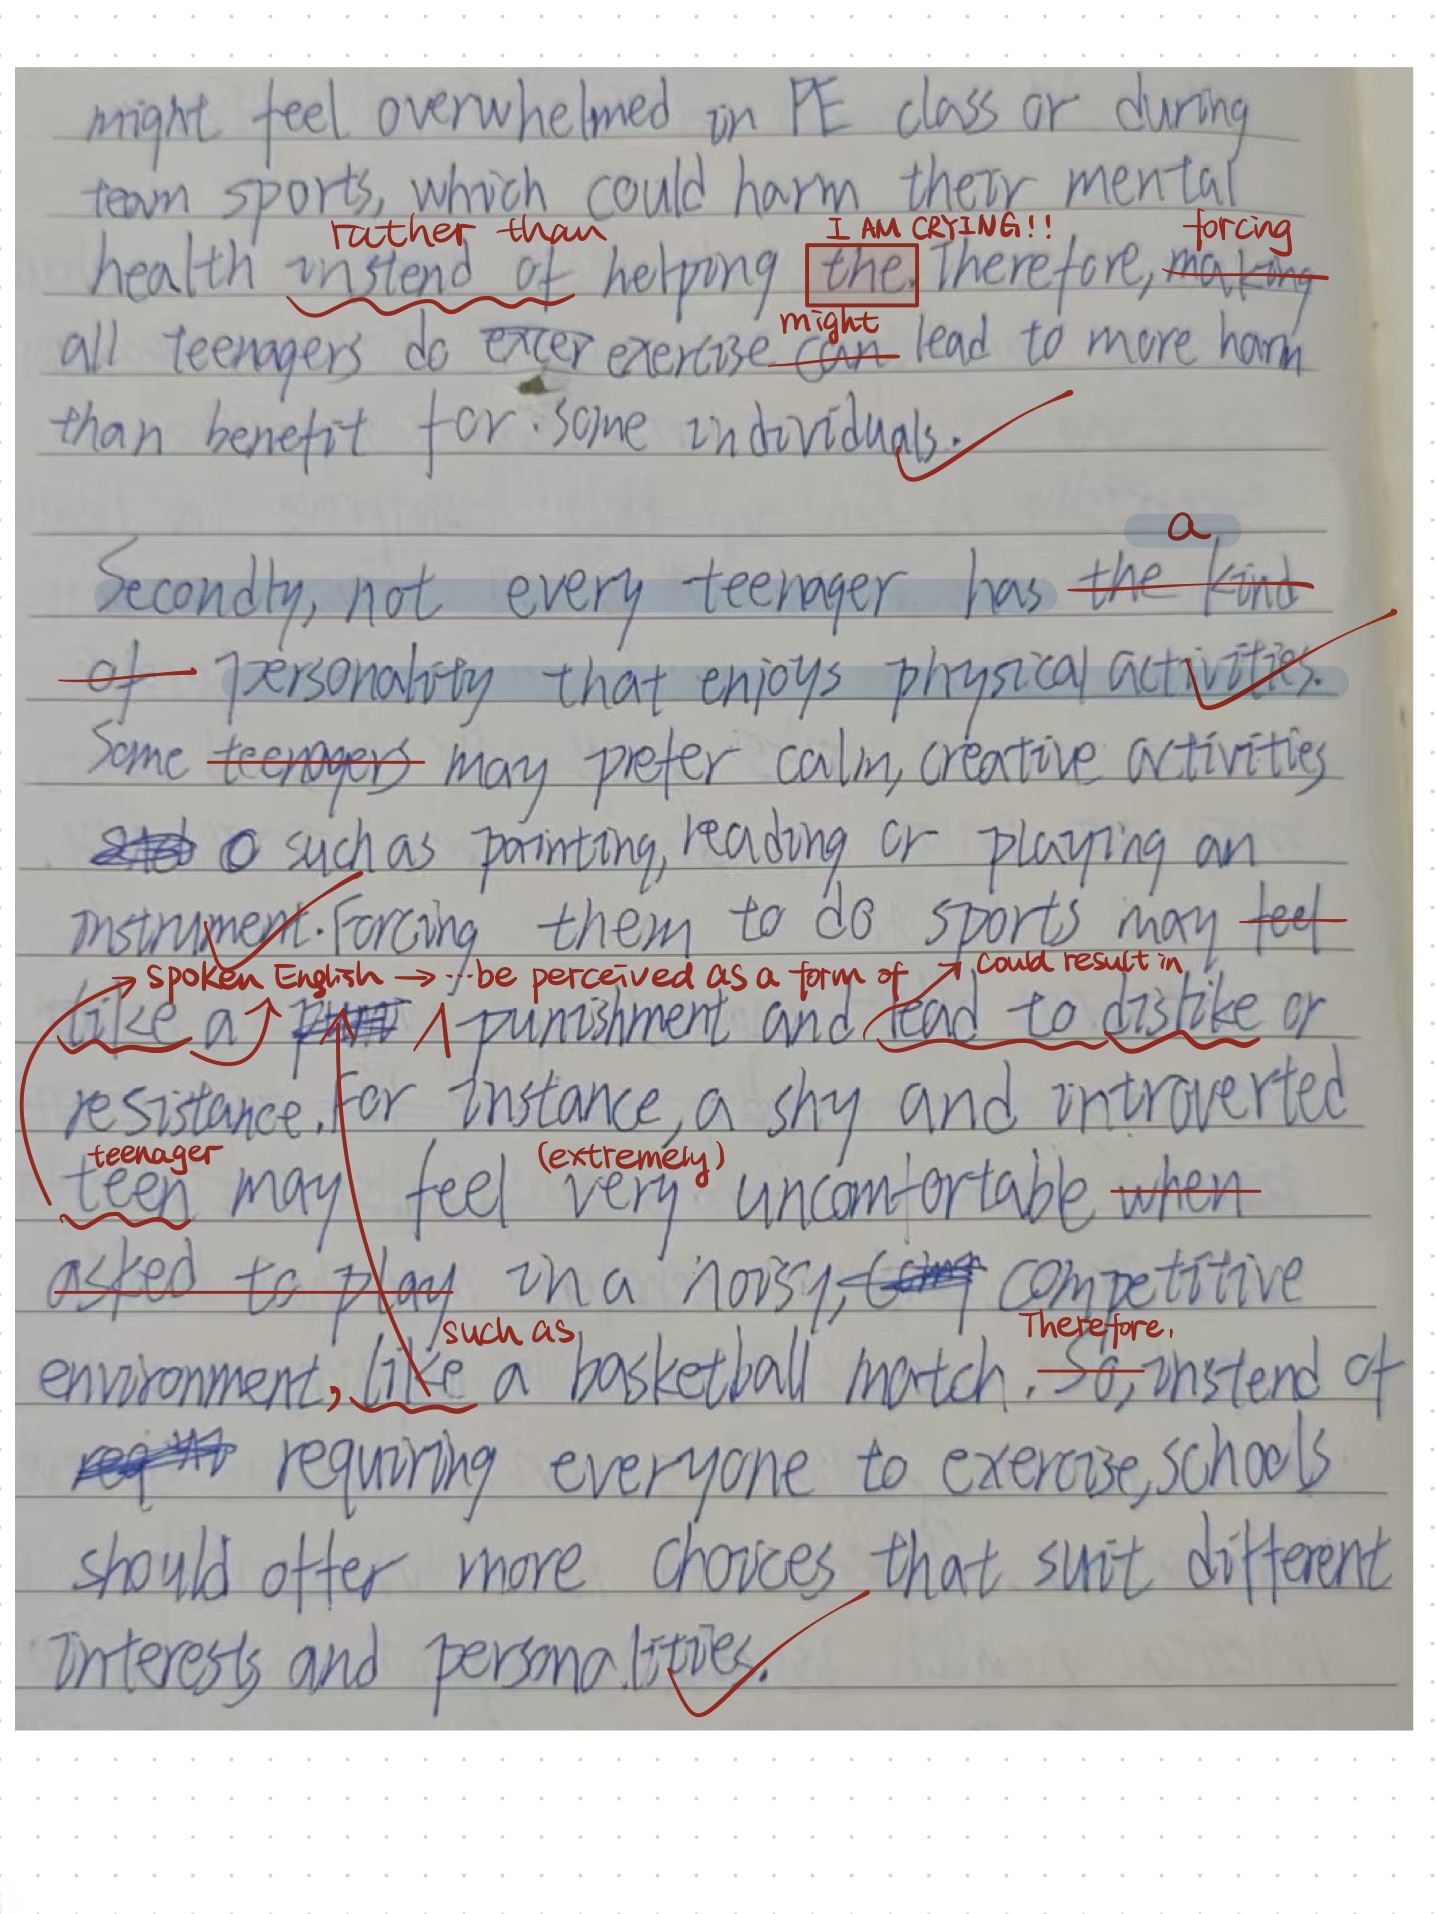 might feel overwhelmed in PE class or during
team sports, which could harm their mental
rather than I AM CRYING!! forcing
health instend of helping the. Therefore, making
might
all teenagers do excer exercise can lead to more harm
than benefit for some individuals.
a
Secondly, not every teenager has the kind
of personality that enjoys physical activities.
Some teenagers may prefer calm, creative activities
such as painting, reading or playing an
instrument. Forcing them to do sports may feel
spoken English → ... be perceived as a form of could result in
like a punishment and lead to dislike or
resistance. For instance, a shy and introverted
teenager (extremely)
teen may feel very uncomfortable when
asked to play in a noisy, competitive
such as Therefore,
environment, like a basketball match. So, instend of
requiring everyone to exercise, schools
should offer more choices that suit different
interests and personalities.